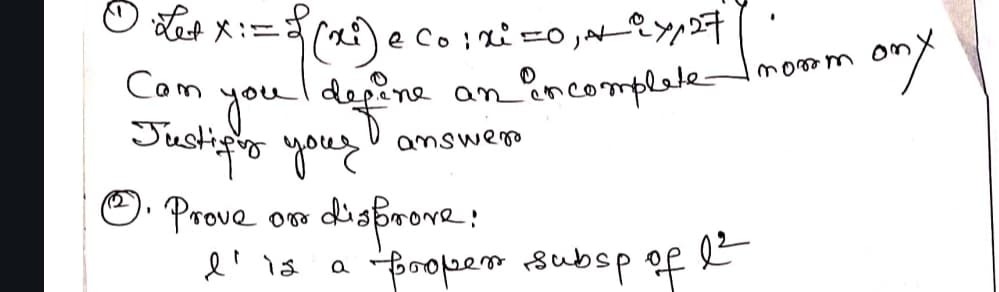 ① Let X := {(xi) ∈ c0 : xi = 0, ∀ i ≥ 127}.
Can you define an incomplete norm on X
Justify your answer
②. Prove or disprove:
l¹ is a proper subsp of l²